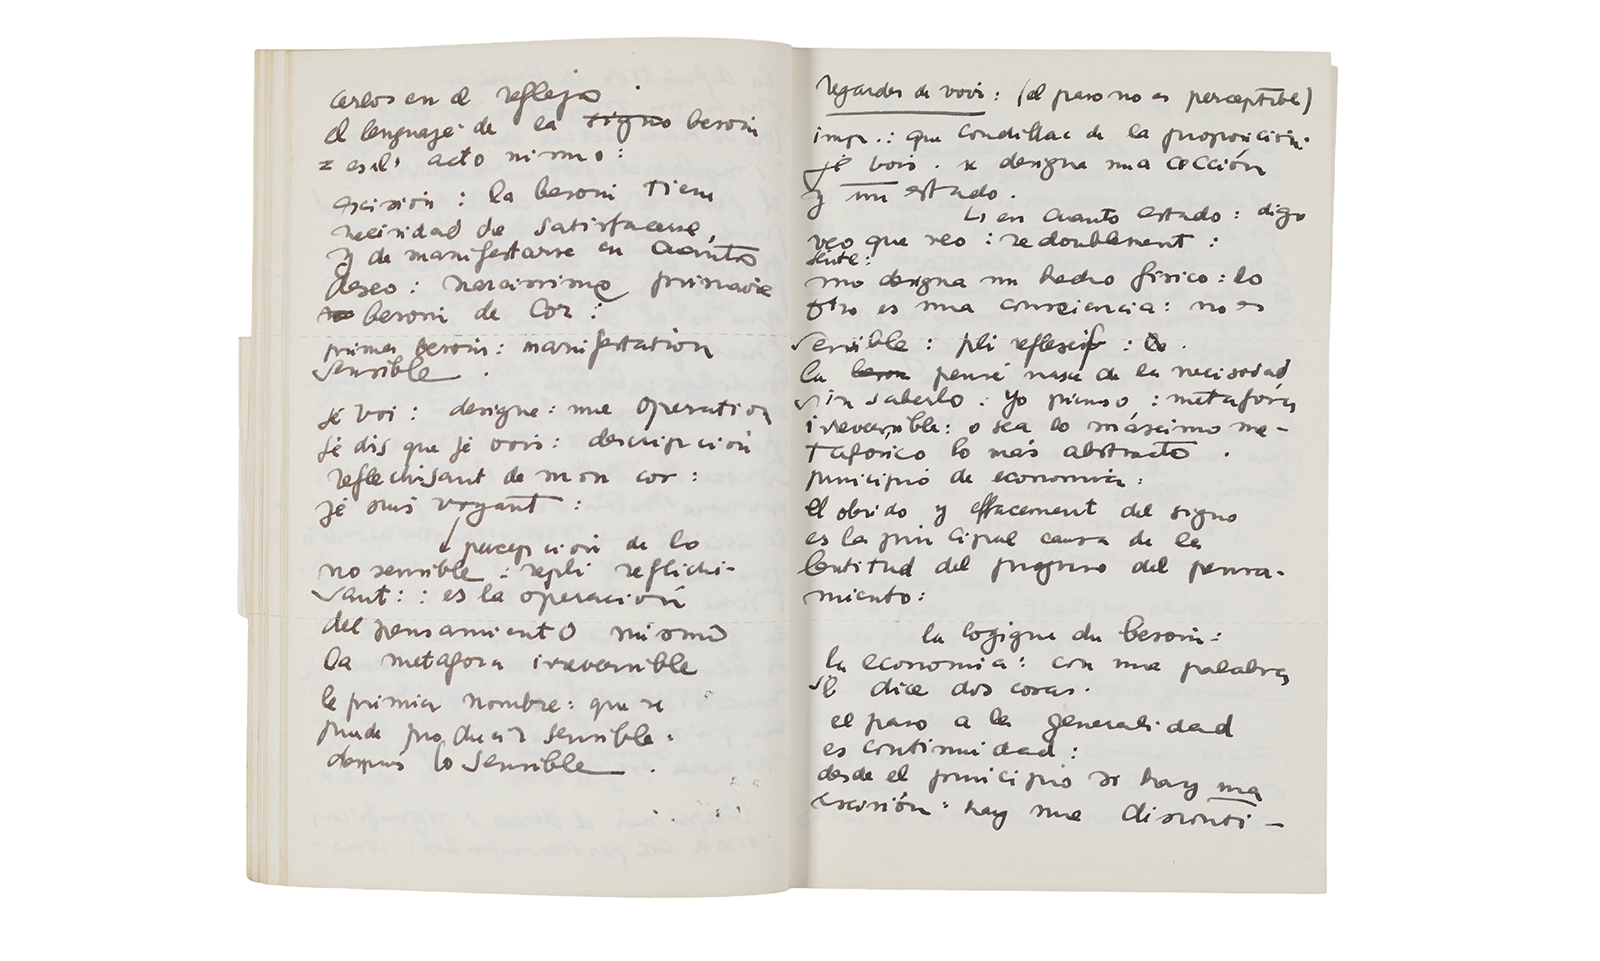 cerlos en el reflejo .
el lenguaje de la signo besoin
= es el acto mismo :
escision : la besoin tiene
necesidad de satisfacerse,
y de manifestarse en cuanto
deseo : narcisismo primaire
besoin de Cor :
primer besoin : manifestation
sensible .
je voi : designe : une operation
je dis que je vois : descripción
reflechisant de mon cor :
je suis voyant :
percepción de lo
no sensible : repli reflichi-
sant : : es la operación
del pensamiento mismo
la metafora irreversible
le primier nombre : que se
puede producir sensible .
despues lo sensible .
regarder de voir : (el paso no es perceptible)
imp. : que Condillac de la proposición.
je vois . se designa una acción
y un estado .
↳ en cuanto estado : digo
veo que veo : redoublement :
siente :
uno designa un hecho físico : lo
otro es una consciencia : no es
sensible : pli reflexif :
la beson pensé nase de la necisidad
sin saberlo . Yo pienso : metafora
irreversible : o sea lo máximo me-
taforico lo más abstracto .
principio de economia :
el olvido y effacement del signo
es la principal causa de la
lentitud del progreso del pensa-
miento :
la logique du besoin :
la economia : con una palabra
se dice dos cosas .
el paso a la generalidad
es continuidad :
desde el principio si hay una
escisión : hay une disconti-